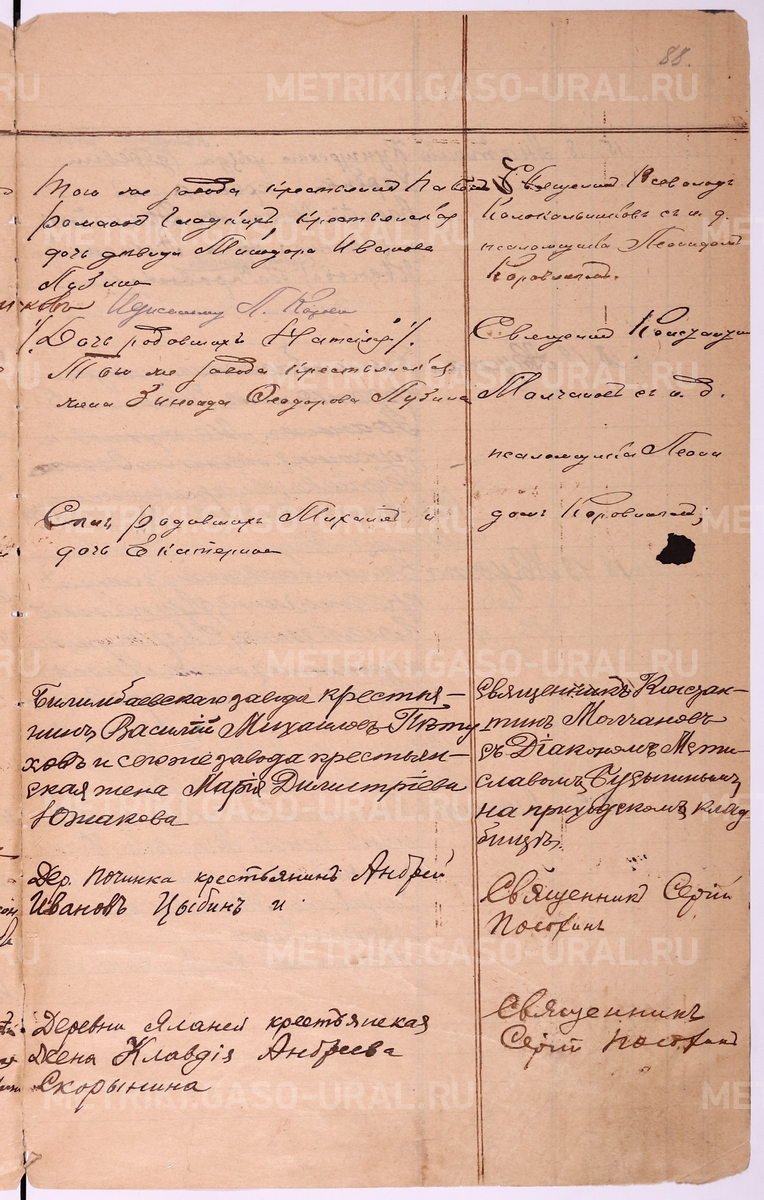 88.
METRIKI.GASO-URAL.RU
Того же завода крестьянин
Романов Гладких крестьянская
дочь девица Ивановна
Лузина
П. Коров
Дочь родовшихъ
Того же завода крестьянская
жена Зинаида Феодорова Лузина
родовшихъ Михаилъ и
дочь Екатерина
Билимбаевскаго завода крестья-
нинъ Василій Михаиловъ Пету
ховъ и сегоже завода крестьян-
ская жена Марія Димитріева
Южакова
Дер. Починка крестьянинъ Андрей
Ивановъ Цыбинъ и
Деревни Яланей крестьянская
жена Клавдія Андреева
Скорынина
Священник Всеволодъ
Колокольниковъ съ и. д.
псаломщика Леонидомъ
Коровинымъ.
Священник Константин
Молчановъ съ и. д.
псаломщика Леони
домъ Коровинымъ;
Священникъ Констан-
тинъ Молчановъ
съ Діакономъ Мсти-
славомъ
на приходскомъ клад
бищѣ
Священникъ Сергій
Постинъ
Священникъ
Сергій